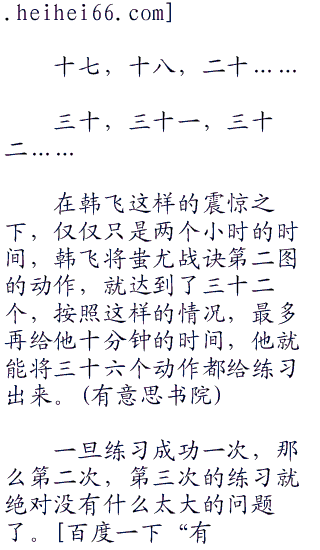 .heihei66.com]
十七，十八，二十……
三十，三十一，三十
二……
在韩飞这样的震惊之
下，仅仅只是两个小时的时
间，韩飞将蚩尤战诀第二图
的动作，就达到了三十二
个，按照这样的情况，最多
再给他十分钟的时间，他就
能将三十六个动作都给练习
出来。(有意思书院)
一旦练习成功一次，那
么第二次，第三次的练习就
绝对没有什么太大的问题
了。[百度一下“有